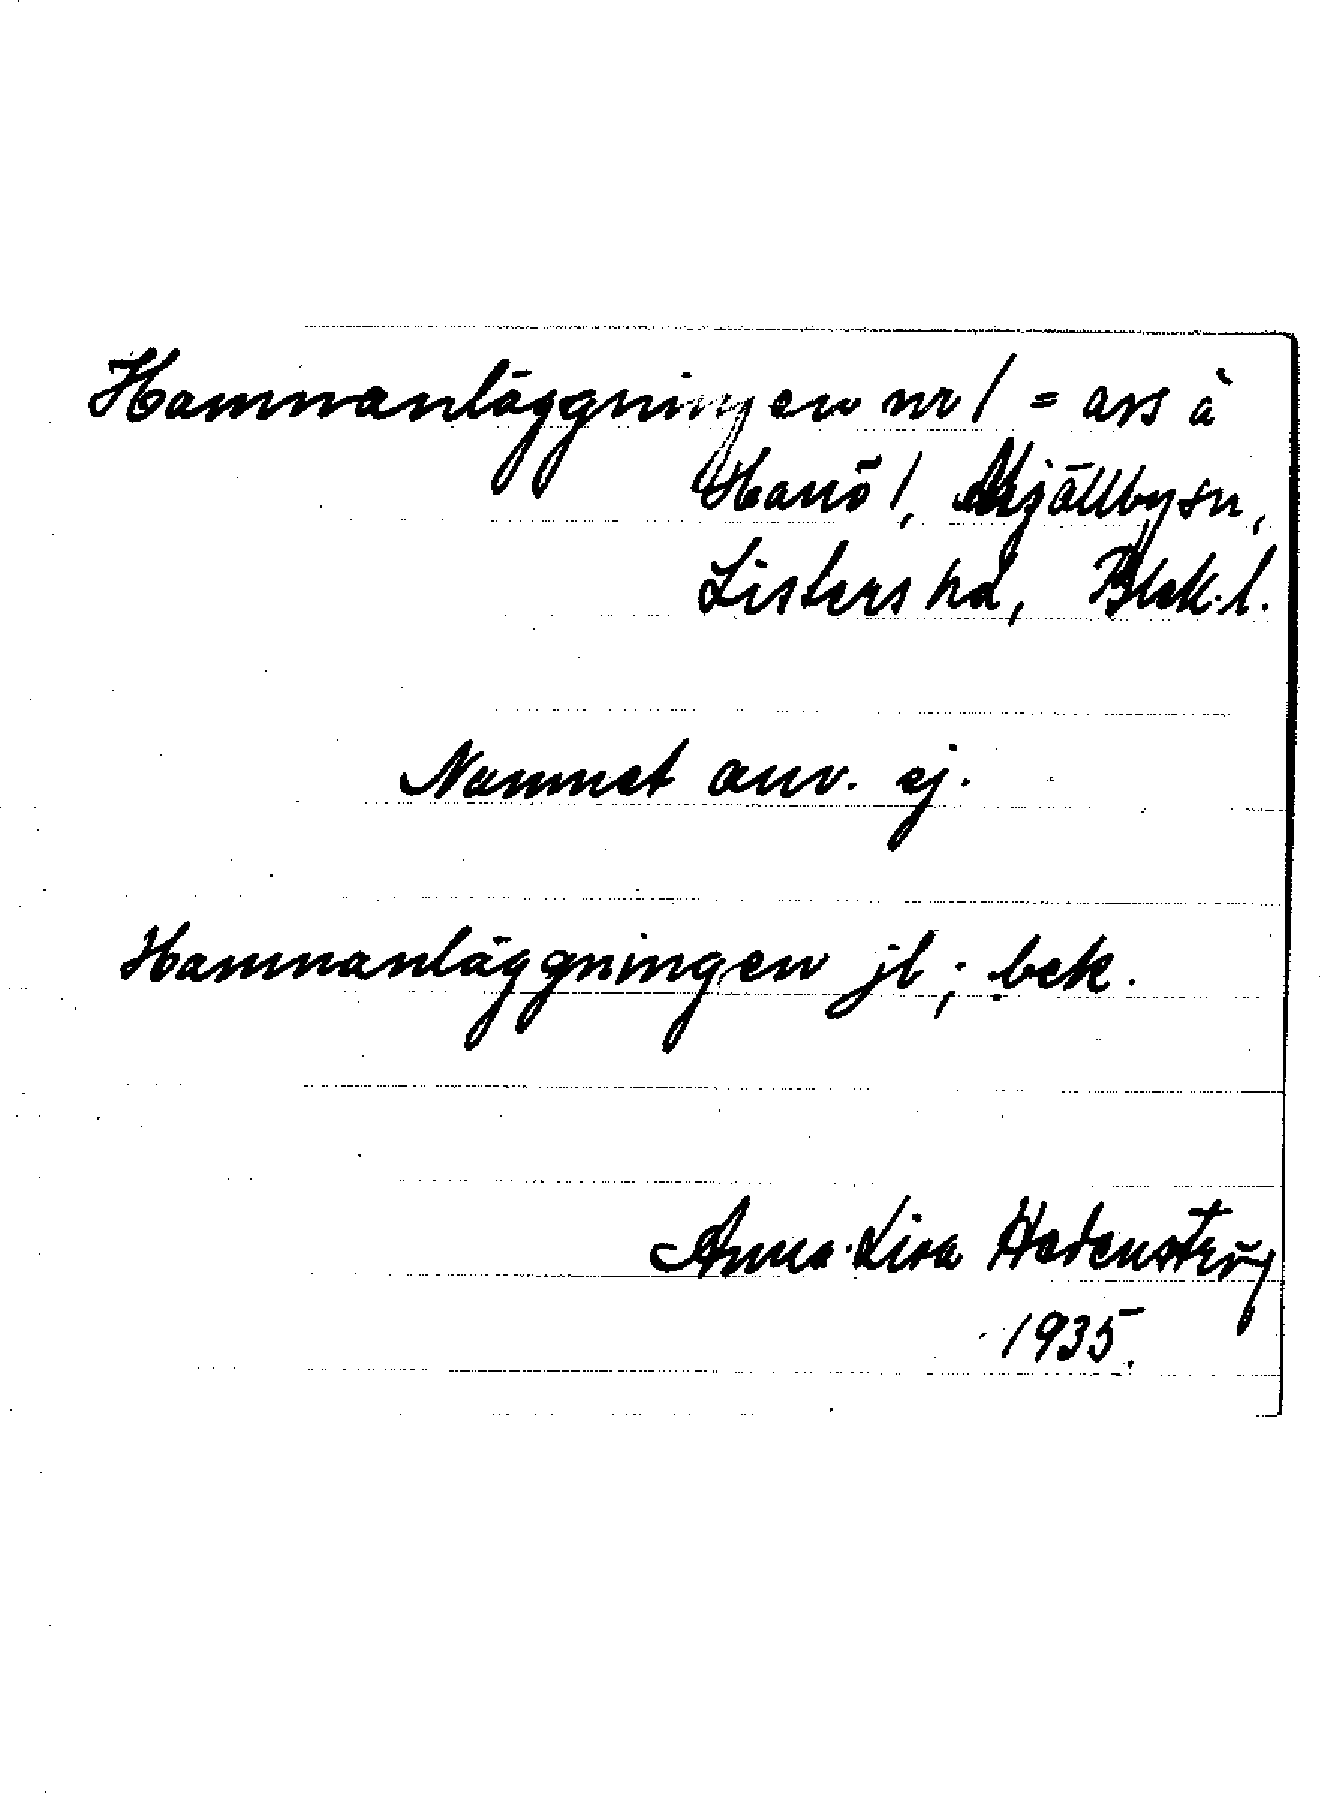 Hamnanläggningen nr 1 = avs å
Hanö 1, Mjällby sn,
Listers hd, Blek. l.
Namnet anv. ej.
Hamnanläggningen jb; bek.
Anna-Lisa Hedenstierg
1935.